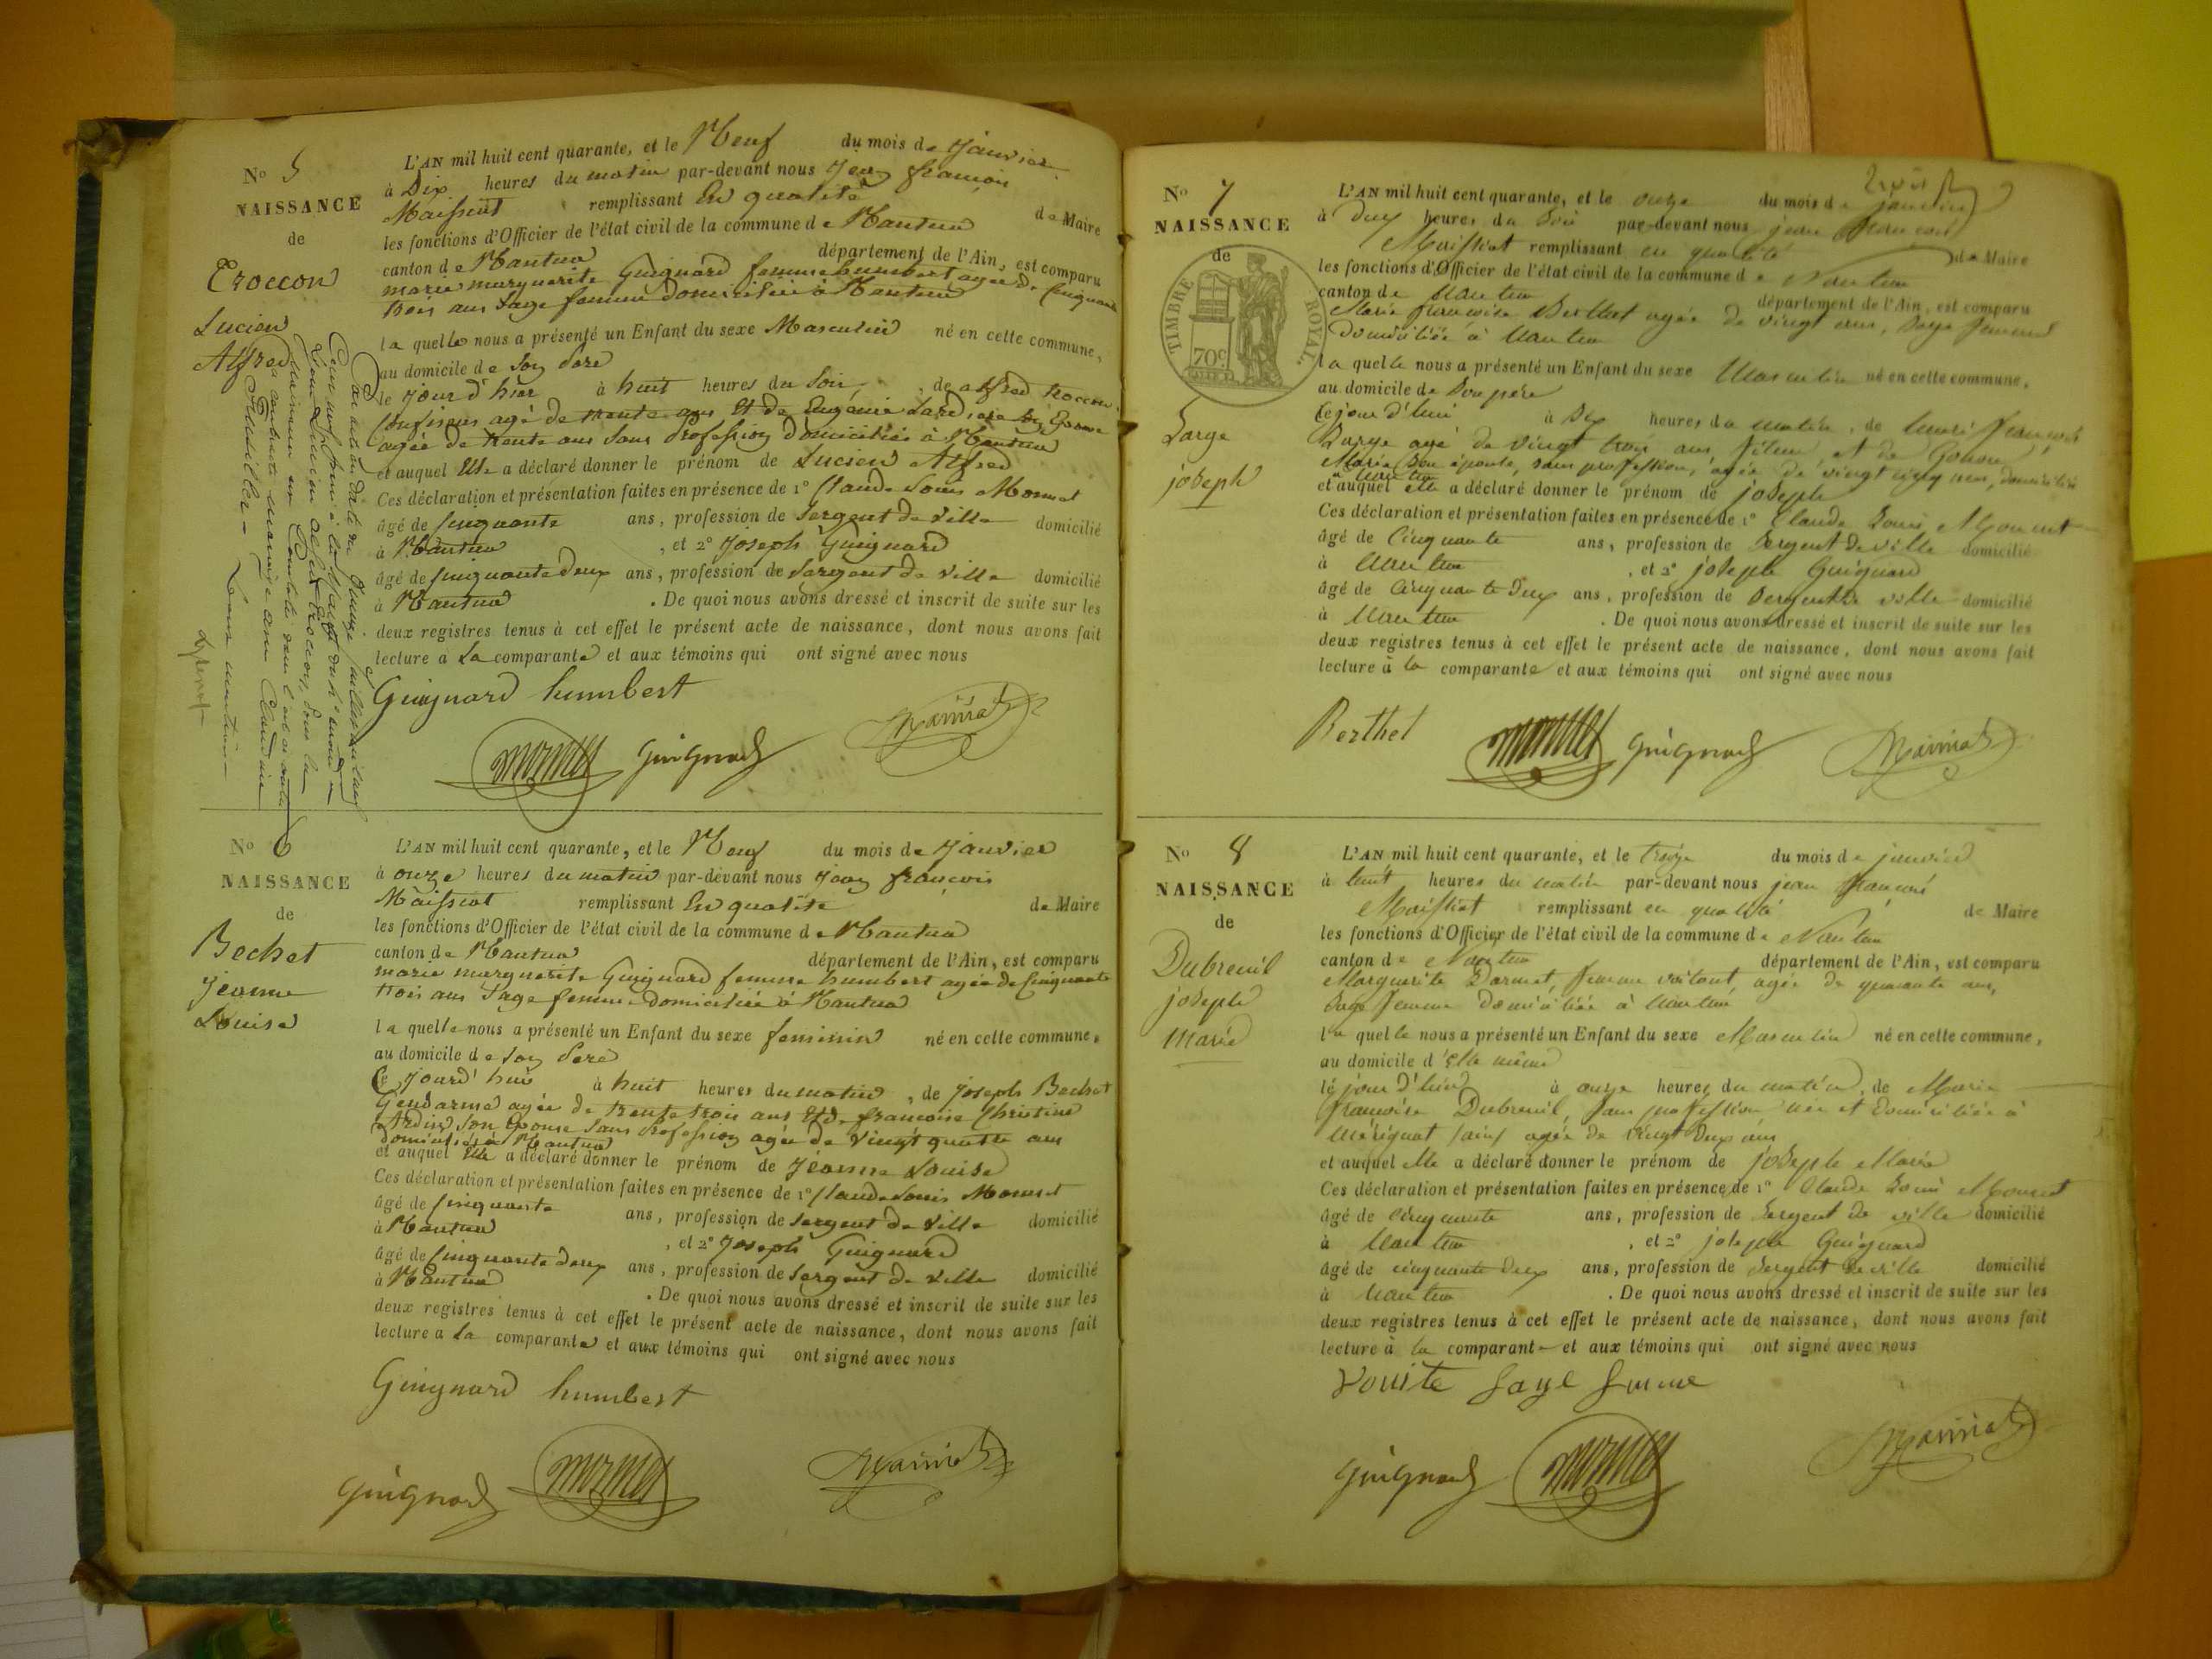 N° 5
NAISSANCE
de
Croccon
Lucien
Alfred
L'AN mil huit cent quarante, et le Neuf du mois de Janvier
à Dix heures du matin par-devant nous Jean françois
Maissiat remplissant En qualité de Maire
les fonctions d'Officier de l'état civil de la commune de Nantua
canton de Nantua département de l'Ain, est comparu
marie marguerite Guignard femme humbert agée de Cinquante
trois ans Sage femme domiciliée à Nantua
laquelle nous a présenté un Enfant du sexe Masculin né en cette commune,
au domicile de Son Père
le jour d'hier à huit heures du Soir, de alfred
agé de trente ans Et de Eugénie
agée de trente ans Sans Profession Domiciliés à Nantua
et auquel Elle a déclaré donner le prénom de Lucien Alfred
Ces déclaration et présentation faites en présence de 1° Claude Louis Monnet
âgé de Cinquante ans, profession de Sergent de Ville domicilié
à Nantua, et 2° Joseph Guignard
âgé de Cinquante deux ans, profession de Sergent de Ville domicilié
à Nantua. De quoi nous avons dressé et inscrit de suite sur les
deux registres tenus à cet effet le présent acte de naissance, dont nous avons fait
lecture a La comparante et aux témoins qui ont signé avec nous
Guignard humbert
Monnet Guignard Maissiat
N° 6
NAISSANCE
de
Bechet
Jeanne
Louise
L'AN mil huit cent quarante, et le Neuf du mois de Janvier
à onze heures du matin par-devant nous Jean françois
Maissiat remplissant En qualité de Maire
les fonctions d'Officier de l'état civil de la commune de Nantua
canton de Nantua département de l'Ain, est comparu
marie marguerite Guignard femme humbert agée de Cinquante
trois ans Sage femme domiciliée à Nantua
laquelle nous a présenté un Enfant du sexe feminin né en cette commune,
au domicile de Son Père
Ce Jourd'hui à huit heures du matin, de Joseph Bechet
Gendarme agée de trente trois ans Et de françoise Christine
Ardin Son Epouse Sans Profession agée de Vingt quatre ans
domiciliés à Nantua
et auquel Elle a déclaré donner le prénom de Jeanne Louise
Ces déclaration et présentation faites en présence de 1° Claude Louis Monnet
âgé de Cinquante ans, profession de Sergent de Ville domicilié
à Nantua, et 2° Joseph Guignard
âgé de Cinquante deux ans, profession de Sergent de Ville domicilié
à Nantua. De quoi nous avons dressé et inscrit de suite sur les
deux registres tenus à cet effet le présent acte de naissance, dont nous avons fait
lecture a La comparante et aux témoins qui ont signé avec nous
Guignard humbert
Guignard Monnet Maissiat
N° 7
NAISSANCE
de
TIMBRE ROYAL.
70c
Large
joseph
L'AN mil huit cent quarante, et le onze du mois de janvier
à deux heures du Soir par-devant nous jean françois
Maissiat remplissant en qualité de Maire
les fonctions d'Officier de l'état civil de la commune de Nantua
canton de Nantua département de l'Ain, est comparu
Marie françoise Berthet agée de vingt ans, Sage femme
domiciliée à Nantua
laquelle nous a présenté un Enfant du sexe Masculin né en cette commune,
au domicile de Son père
Ce jour d'hui à Dix heures du matin, de françois
Large agé de vingt trois ans, et de Gonon
Marie Son épouse, sans profession, agée de vingt cinq ans, domiciliés
à Nantua
et auquel elle a déclaré donner le prénom de joseph
Ces déclaration et présentation faites en présence de 1° Claude Louis Monnet
âgé de Cinquante ans, profession de Sergent de ville domicilié
à Nantua, et 2° joseph Guignard
âgé de Cinquante deux ans, profession de Sergent de ville domicilié
à Nantua. De quoi nous avons dressé et inscrit de suite sur les
deux registres tenus à cet effet le présent acte de naissance, dont nous avons fait
lecture à la comparante et aux témoins qui ont signé avec nous
Berthet Monnet Guignard Maissiat
N° 8
NAISSANCE
de
Dubreuil
joseph
Marie
L'AN mil huit cent quarante, et le treize du mois de janvier
à huit heures du matin par-devant nous jean françois
Maissiat remplissant en qualité de Maire
les fonctions d'Officier de l'état civil de la commune de Nantua
canton de Nantua département de l'Ain, est comparu
Marguerite femme agée de quarante ans,
Sage femme domiciliée à Nantua
laquelle nous a présenté un Enfant du sexe Masculin né en cette commune,
au domicile d'elle même
le jour d'hier à onze heures du matin, de Marie
françoise Dubreuil, sans profession née et domiciliée à
agée de vingt deux ans
et auquel elle a déclaré donner le prénom de joseph Marie
Ces déclaration et présentation faites en présence de 1° Claude Louis Monnet
âgé de cinquante ans, profession de Sergent de ville domicilié
à Nantua, et 2° joseph Guignard
âgé de cinquante deux ans, profession de Sergent de ville domicilié
à Nantua. De quoi nous avons dressé et inscrit de suite sur les
deux registres tenus à cet effet le présent acte de naissance, dont nous avons fait
lecture à la comparante et aux témoins qui ont signé avec nous
Sage femme
Guignard Monnet Maissiat